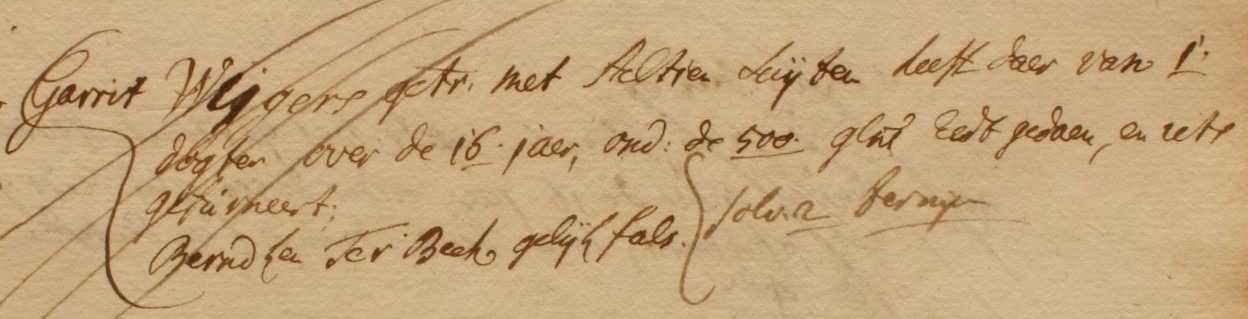 Garrit Wijgers getr. met Aeltien Luijten heeft daer van 1.
dogter over de 16. jaer, ond: de 500. glns Eedt gedaen, en iets
gefurneert;
Berndken Ter Beek gelijkfals. solv: 2 termijn